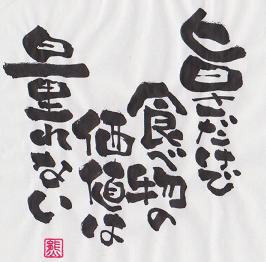 旨さだけで
食べ物の
価値は
量れない
熊